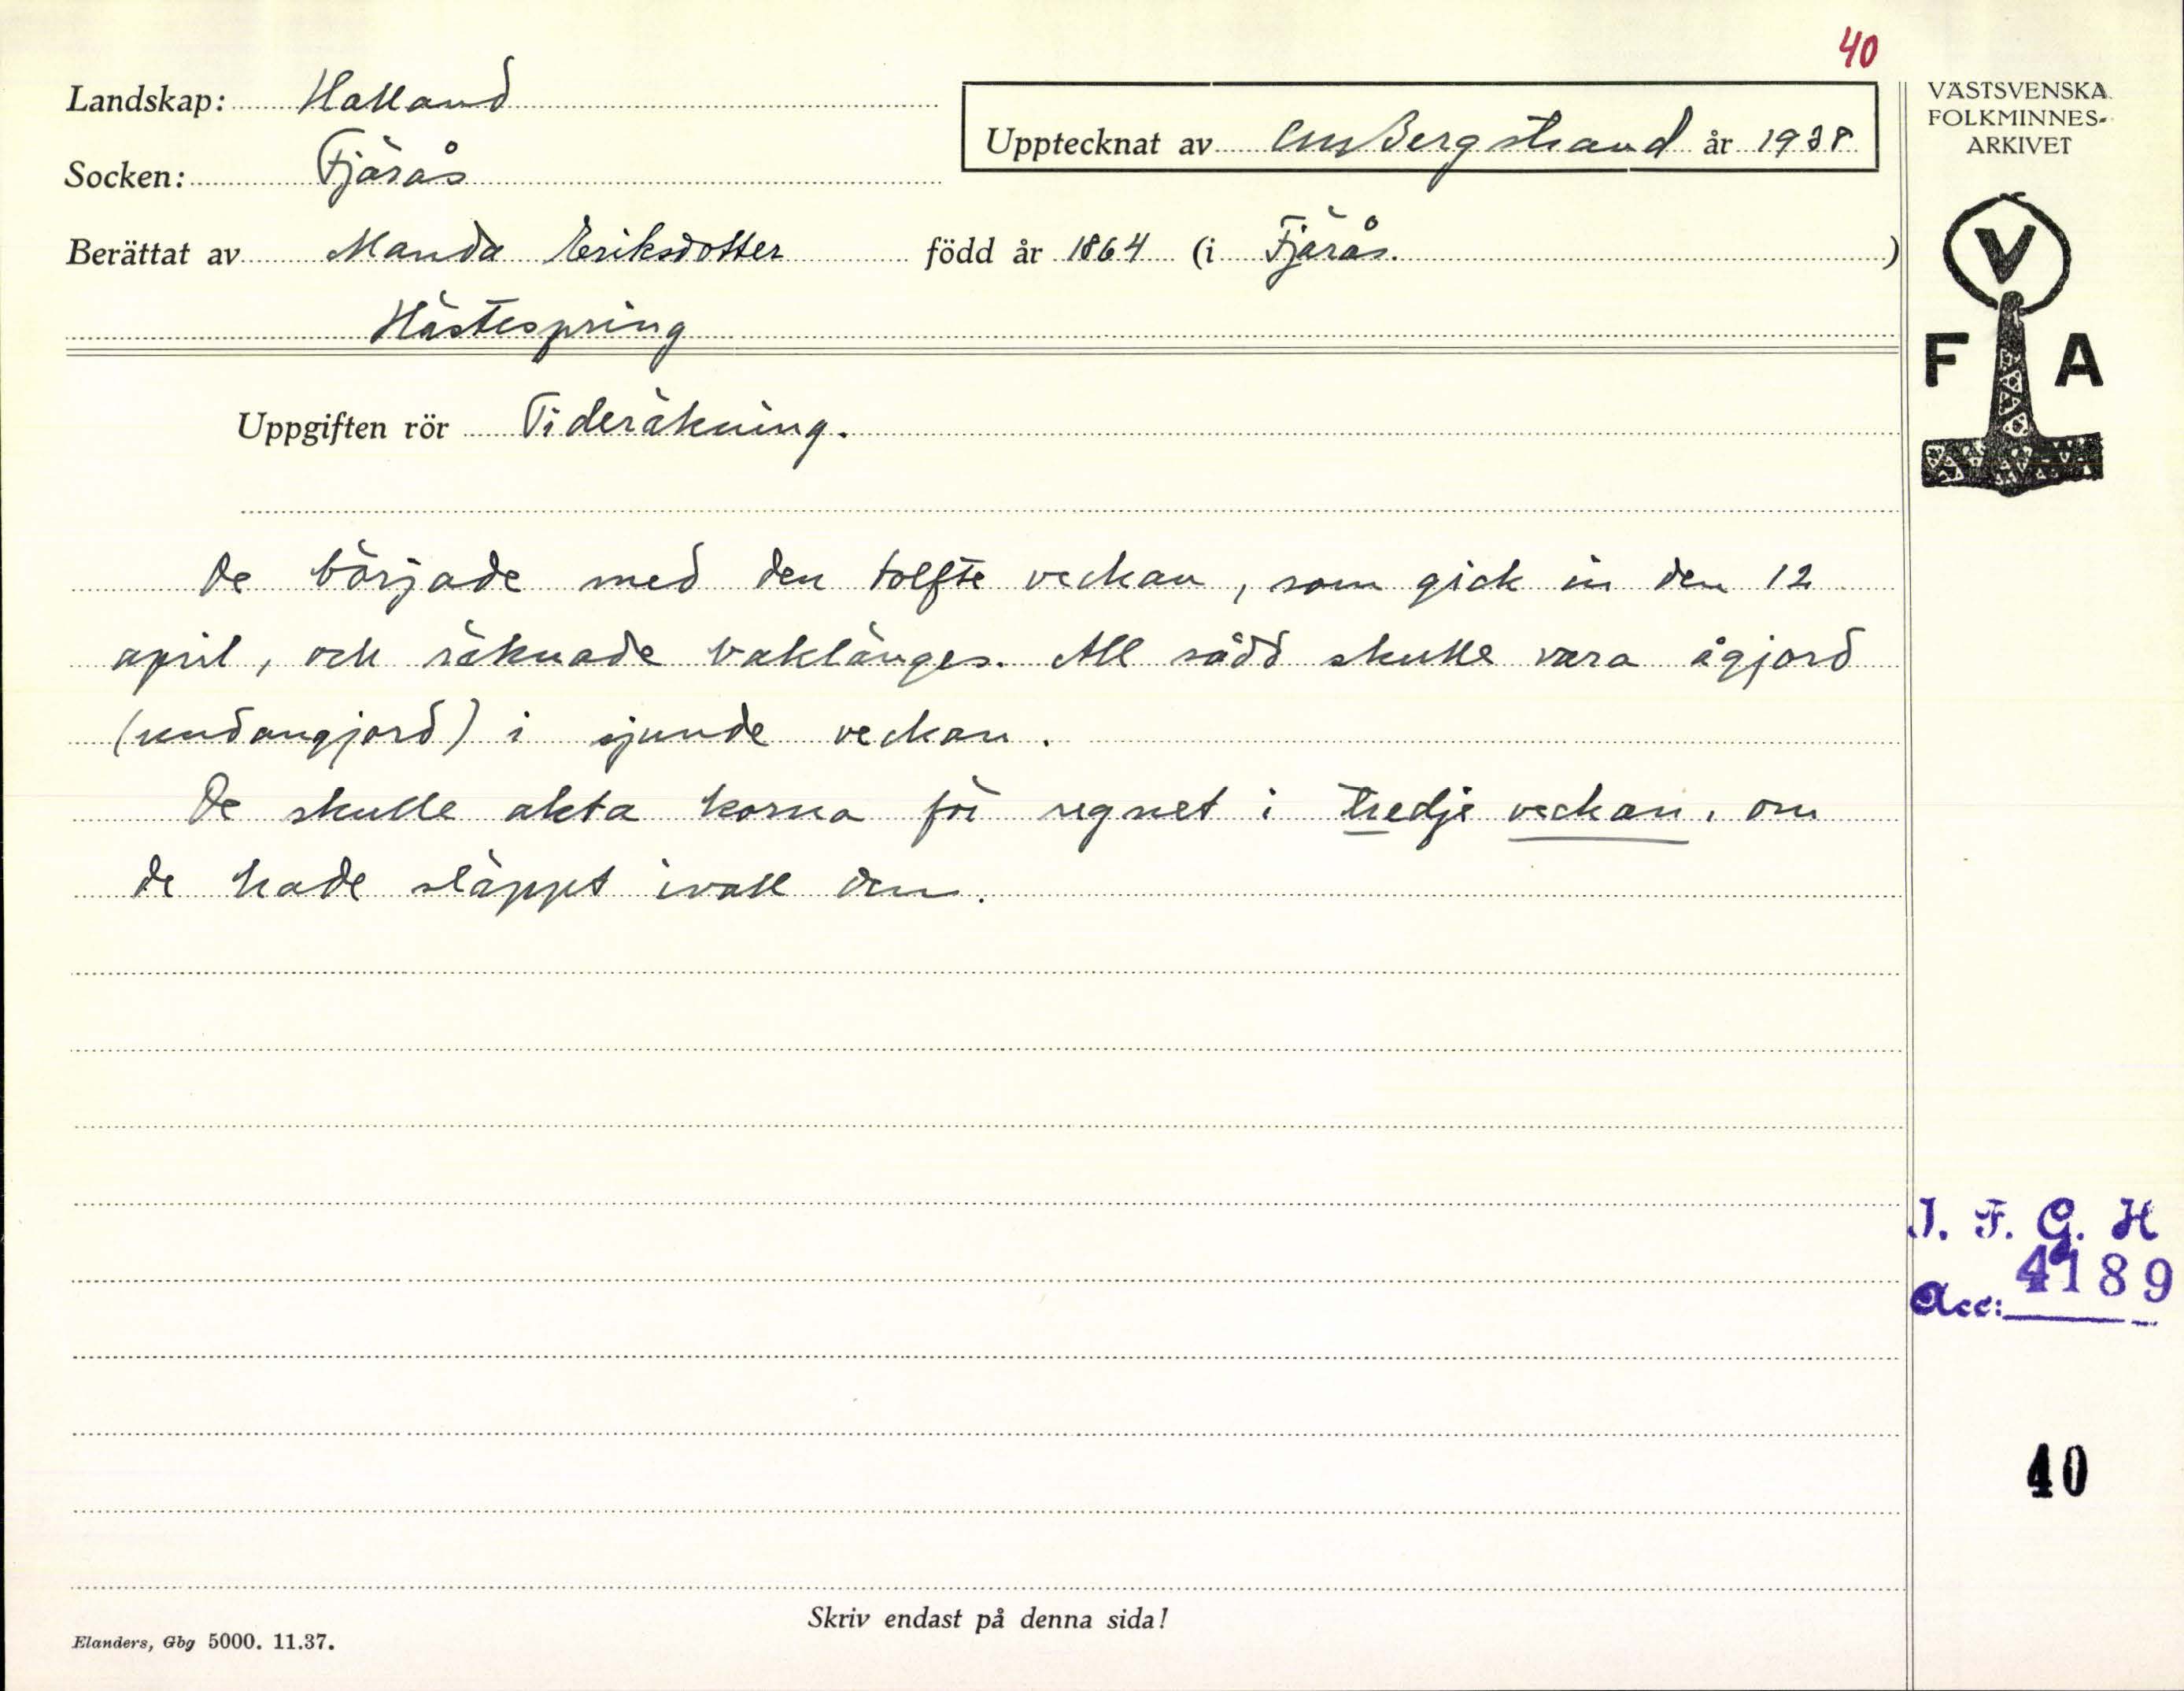 40
Landskap: Halland
Upptecknat av CM Bergstrand år 1938
Socken: Fjärås
Berättat av Manda Eriksdotter född år 1864 (i Fjärås.)
Hästespring
Uppgiften rör Tideräkning.
De började med den tolfte veckan, som gick in den 12
april, och räknade baklänges. All sådd skulle vara ågjord
(undangjord) i sjunde veckan.
De skulle akta korna för regnet i tredje veckan, om
de hade släppt ivall dem.
Skriv endast på denna sida!
Elanders, Gbg 5000. 11.37.
VÄSTSVENSKA
FOLKMINNES-
ARKIVET
V
F A
I. F. G. H
4189
Acc:
40